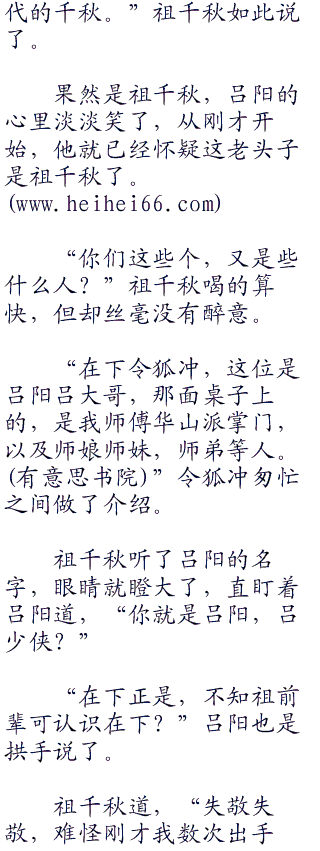 代的千秋。”祖千秋如此说
了。
果然是祖千秋，吕阳的
心里淡淡笑了，从刚才开
始，他就已经怀疑这老头子
是祖千秋了。
(www.heihei66.com)
“你们这些个，又是些
什么人？”祖千秋喝的算
快，但却丝毫没有醉意。
“在下令狐冲，这位是
吕阳吕大哥，那面桌子上
的，是我师傅华山派掌门，
以及师娘师妹，师弟等人。
(有意思书院)”令狐冲匆忙
之间做了介绍。
祖千秋听了吕阳的名
字，眼睛就瞪大了，直盯着
吕阳道，“你就是吕阳，吕
少侠？”
“在下正是，不知祖前
辈可认识在下？”吕阳也是
拱手说了。
祖千秋道，“失敬失
敬，难怪刚才我数次出手